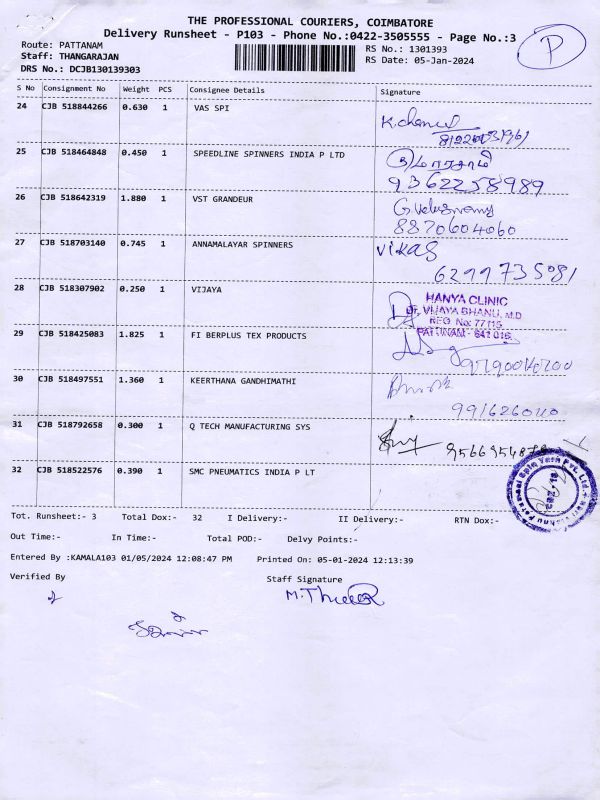 THE PROFESSIONAL COURIERS, COIMBATORE
Delivery Runsheet - P103 - Phone No.:0422-3505555 - Page No.:3
P
Route: PATTANAM
RS No.: 1301393
Staff: THANGARAJAN
RS Date: 05-Jan-2024
DRS No.: DCJB130139303
S No Consignment No Weight PCS Consignee Details Signature
24 CJB 518844266 0.630 1 VAS SPI
25 CJB 518464848 0.450 1 SPEEDLINE SPINNERS INDIA P LTD
9362258989
26 CJB 518642319 1.880 1 VST GRANDEUR
8870604060
27 CJB 518703140 0.745 1 ANNAMALAYAR SPINNERS VIKAS
6299735081
28 CJB 518307902 0.250 1 VIJAYA
HANYA CLINIC
Dr. VIJAYA BHANU, M.D
REG. No: 77115
PATTINAM - 641 016.
29 CJB 518425083 1.825 1 FI BERPLUS TEX PRODUCTS
30 CJB 518497551 1.360 1 KEERTHANA GANDHIMATHI
31 CJB 518792658 0.300 1 Q TECH MANUFACTURING SYS
32 CJB 518522576 0.390 1 SMC PNEUMATICS INDIA P LT
Tot. Runsheet:- 3 Total Dox:- 32 I Delivery:- II Delivery:- RTN Dox:-
Out Time:- In Time:- Total POD:- Delvy Points:-
Entered By :KAMALA103 01/05/2024 12:08:47 PM Printed On: 05-01-2024 12:13:39
Verified By Staff Signature